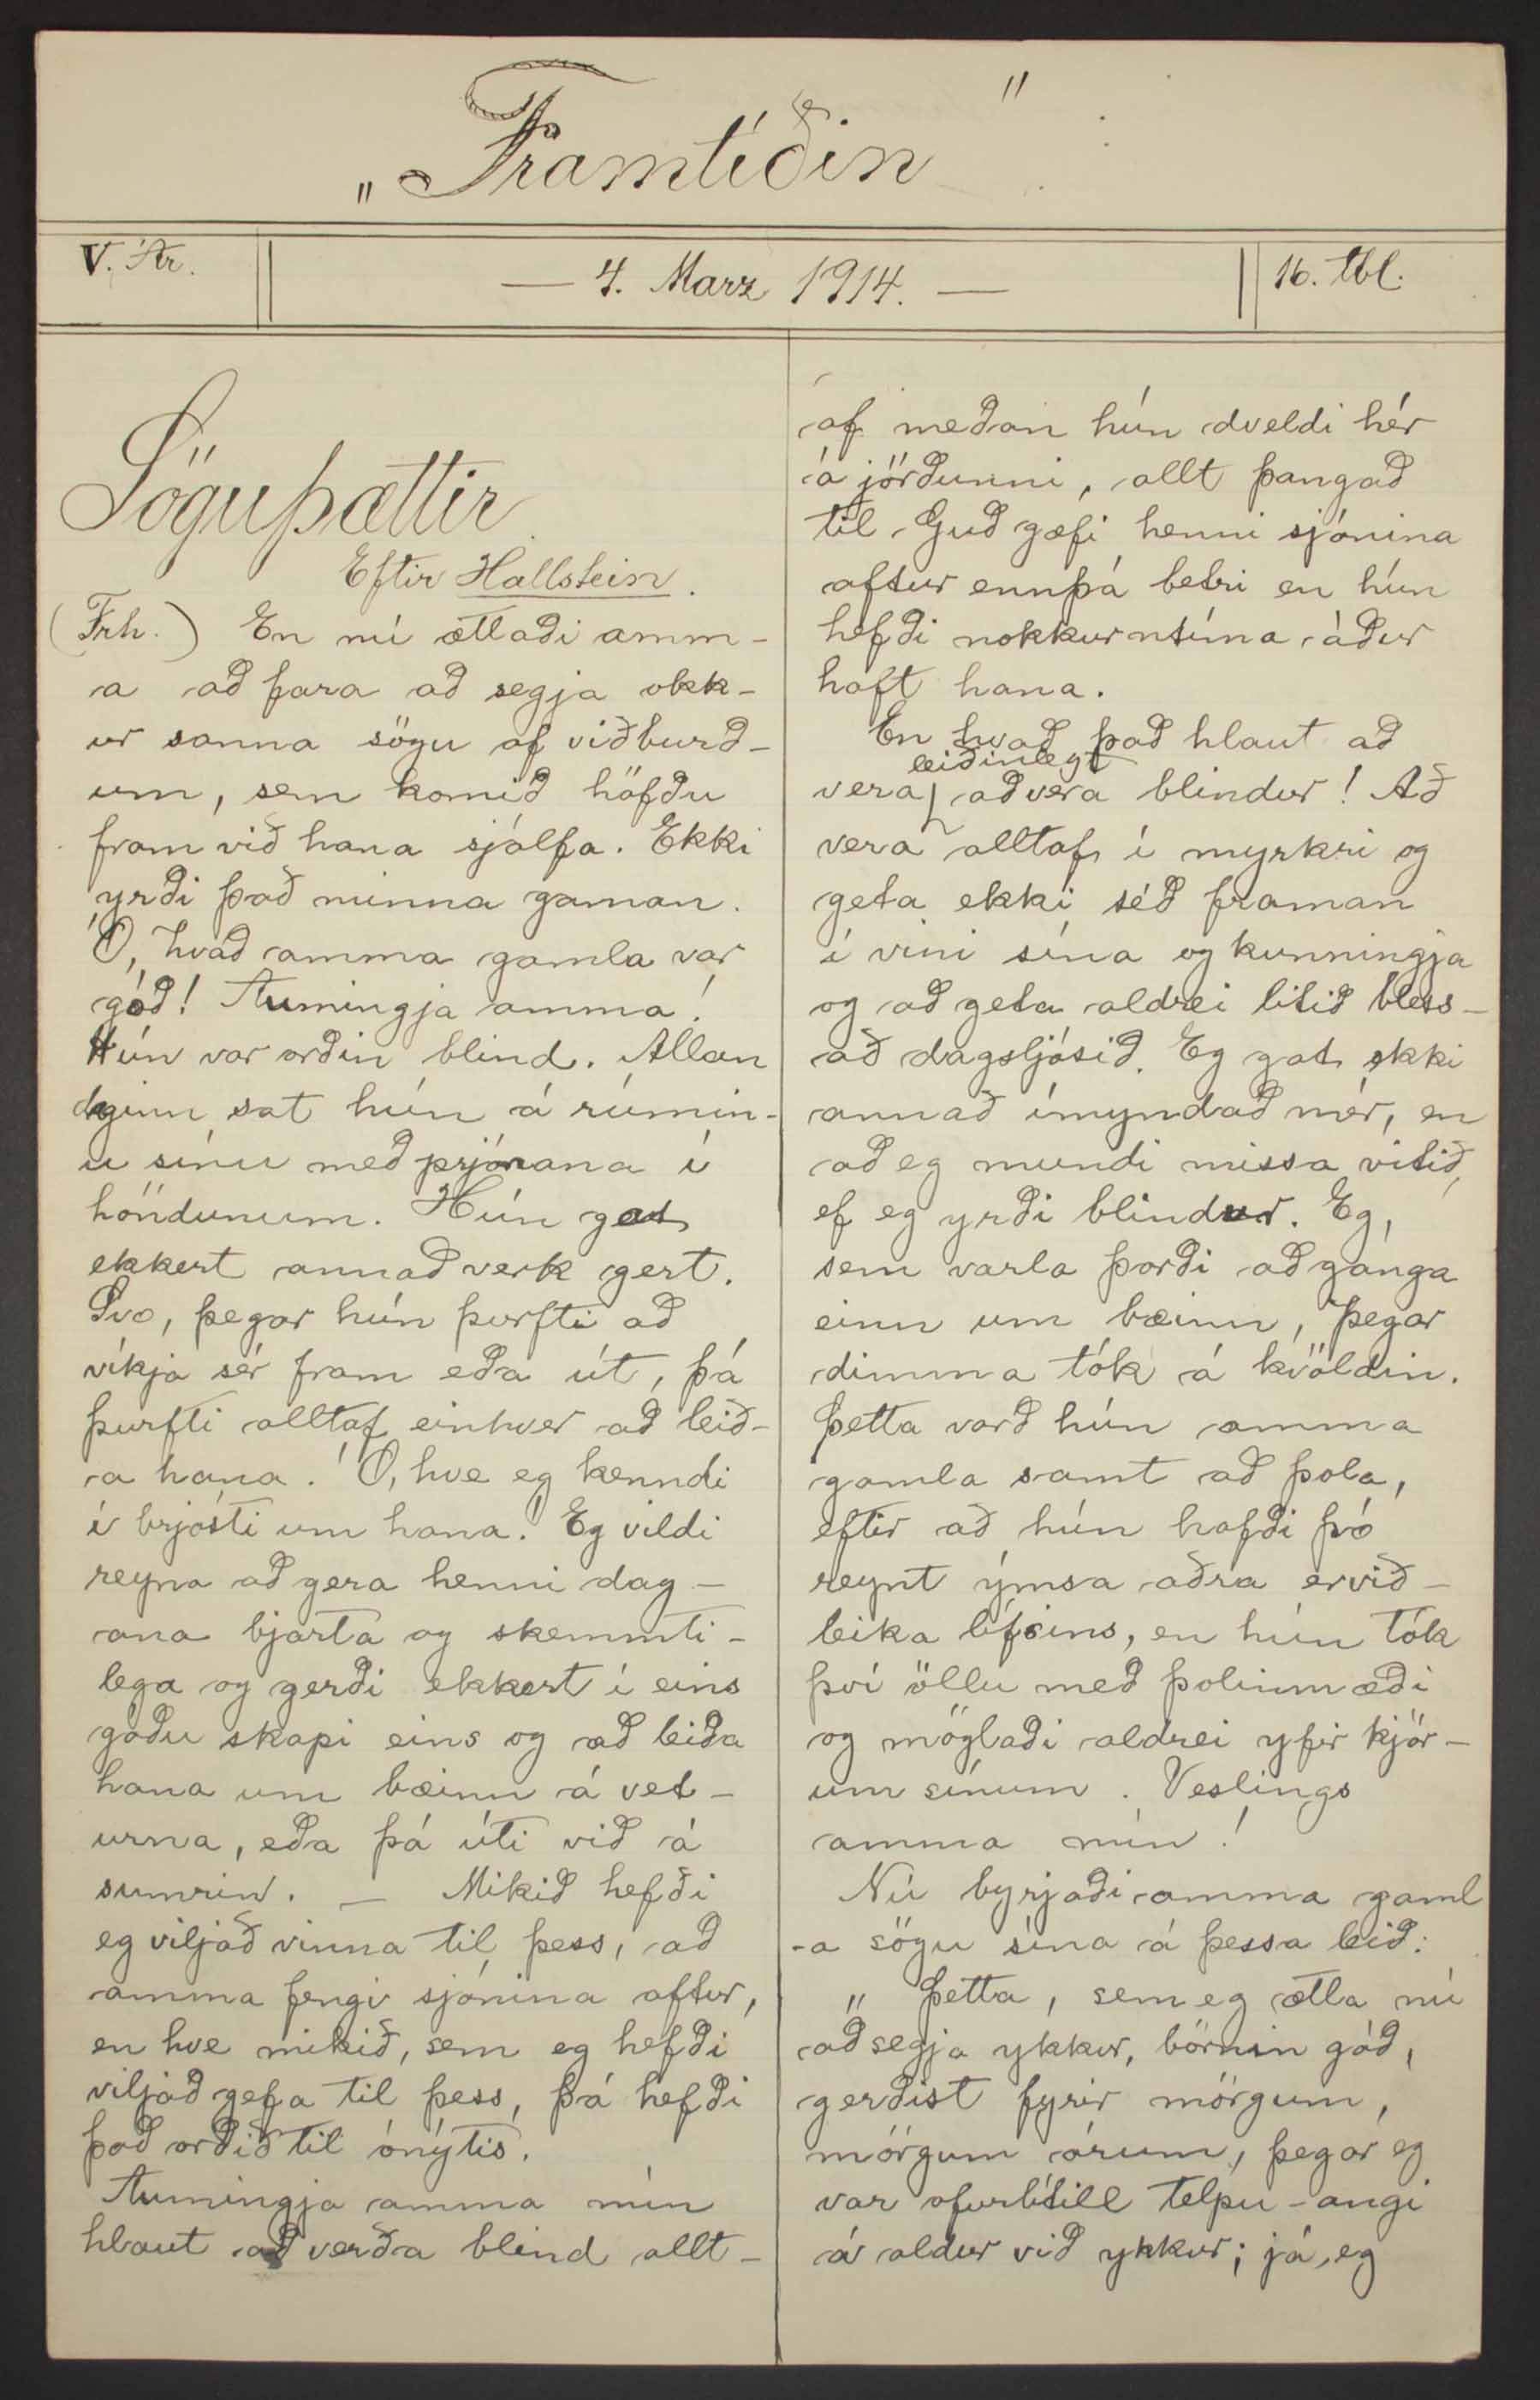 „Framtíðin"
V. Ár.
— 4. Marz 1914. —
16. tbl.
Söguþættir
Eftir Hallstein.
(Frh.) En nú ætlaði amm-
a að fara að segja okk-
ur sanna sögu af viðburð-
um, sem komið höfðu
fram við hana sjálfa. Ekki
yrði það minna gaman.
Ó, hvað amma gamla var
góð! Aumingja amma!
Hún var orðin blind. Allan
daginn sat hún á rúmin-
u sínu með prjónana í
höndunum. Hún gat
ekkert annað verk gert.
Svo, þegar hún þurfti að
víkja sér fram eða út, þá
þurfti alltaf einhver að leið-
a hana. Ó, hve eg kenndi
í brjósti um hana! Eg vildi
reyna að gera henni dag-
ana bjarta og skemmti-
lega og gerði ekkert í eins
góðu skapi eins og að leiða
hana um bæinn á vet-
urna, eða þá úti við á
sumrin. — Mikið hefði
eg viljað vinna til þess, að
amma fengi sjónina aftur,
en hve mikið, sem eg hefði
viljað gefa til þess, þá hefði
það orðið til ónýtis.
Aumingja amma mín
hlaut að verða blind allt-
af meðan hún dveldi hér
á jörðunni, allt þangað
til Guð gæfi henni sjónina
aftur ennþá betri en hún
hefði nokkurntíma áður
haft hana.
En hvað það hlaut að
leiðinlegt
vera að vera blindur! Að
vera alltaf í myrkri og
geta ekki séð framan
í vini sína og kunningja
og að geta aldrei litið bless-
að dagsljósið. Eg gat ekki
annað ímyndað mér, en
að eg mundi missa vitið,
ef eg yrði blindur. Eg,
sem varla þorði að ganga
einn um bæinn, þegar
dimma tók á kvöldin.
Þetta varð hún amma
gamla samt að þola,
eftir að hún hafði þó
reynt ýmsa aðra ervið-
leika lífsins, en hún tók
því öllu með þolinmæði
og möglaði aldrei yfir kjör-
um sínum. Veslings
amma mín!
Nú byrjaði amma gaml
-a sögu sína á þessa leið:
„Þetta, sem eg ætla nú
að segja ykkur, börnin góð,
gerðist fyrir mörgum,
mörgum árum, þegar eg
var ofurlítill telpu-angi
á aldur við ykkur; já, eg